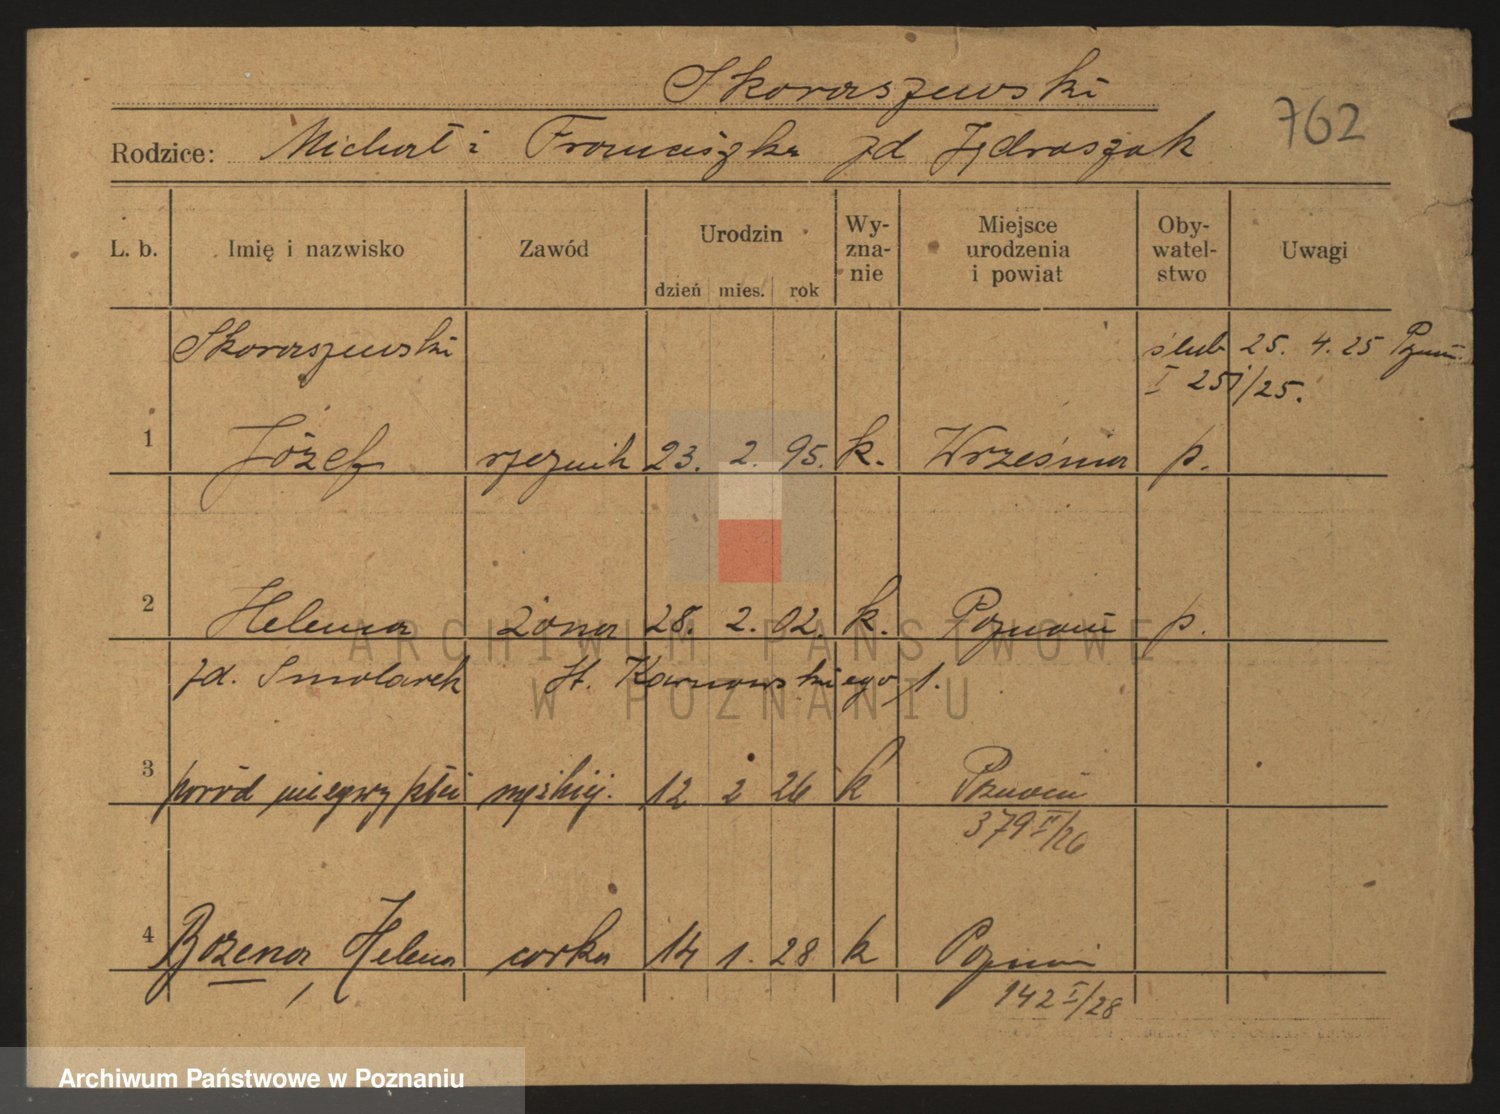 Skoraszewski
762
Rodzice: Michał i Franciszka zd Jędraszak
L. b. Imię i nazwisko Zawód Urodzin dzień mies. rok Wy-zna-nie Miejsce urodzenia i powiat Oby-watel-stwo Uwagi
Skoraszewski ślub 25. 4. 25 Poznań
I 251/25.
1 Józef rzeźnik 23. 2. 95. k. Września p.
2 Helena żona 28. 2. 02. k. Poznań p.
zd. Smolarek st. Karnowskiego 1.
3 poród nieżywy płci męskiej. 12 2 26 k Poznań
379 II/26
4 Bożena, Helena córka 14 1. 28 k Poznań
142 I/28
ARCHIWUM PAŃSTWOWE
W POZNANIU
Archiwum Państwowe w Poznaniu